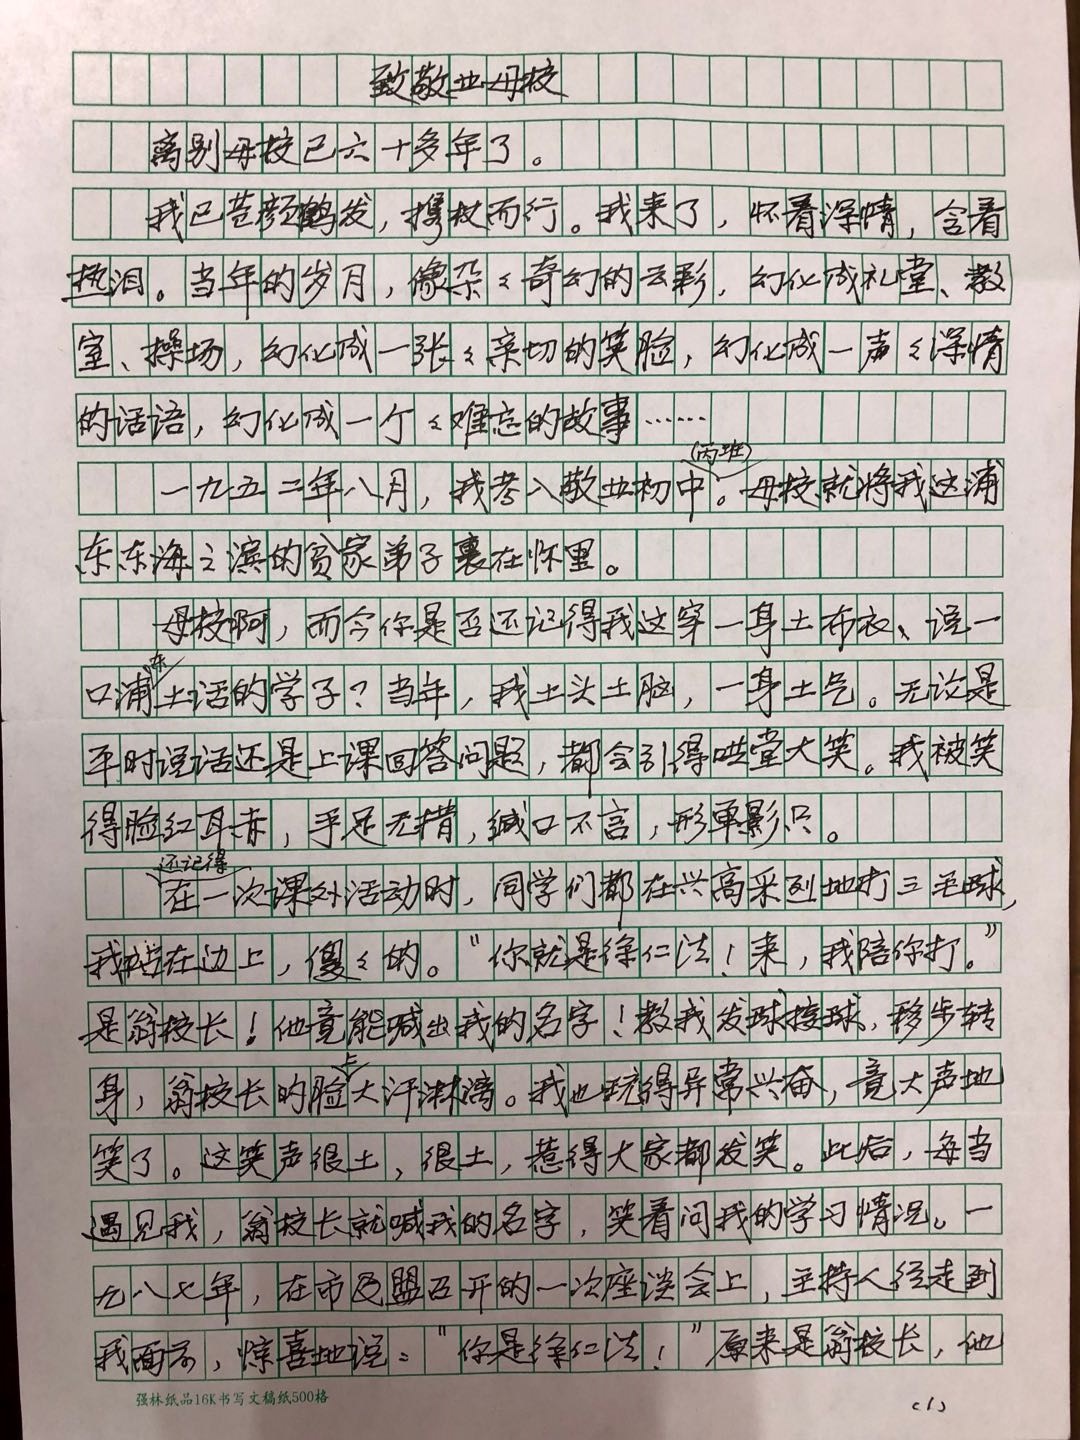 致敬业母校
离别母校已六十多年了。
我已苍颜鹤发，携杖而行。我来了，怀着深情，含着
热泪。当年的岁月，像朵々奇幻的云彩，幻化成礼堂、教
室、操场，幻化成一张々亲切的笑脸，幻化成一声々深情
的话语，幻化成一个々难忘的故事……
(丙班)
一九五二年八月，我考入敬业初中。母校就将我这浦
东东海之滨的贫家弟子裹在怀里。
母校啊，而今你是否还记得我这穿一身土布衣、说一
东
口浦土话的学子？当年，我土头土脑，一身土气。无论是
平时说话还是上课回答问题，都会引得哄堂大笑。我被笑
得脸红耳赤，手足无措，缄口不言，形单影只。
还记得
在一次课外活动时，同学们都在兴高采烈地打三毛球，
我站在边上，傻々的。“你就是徐仁法！来，我陪你打。”
是翁校长！他竟能喊出我的名字！教我发球接球，移步转
上
身，翁校长的脸大汗淋漓。我也玩得异常兴奋，竟大声地
笑了。这笑声很土，很土，惹得大家都发笑。此后，每当
遇见我，翁校长就喊我的名字，笑着问我的学习情况。一
九八七年，在市民盟召开的一次座谈会上，主持人径走到
我面前，惊喜地说：“你是徐仁法！”原来是翁校长，他
强林纸品16K书写文稿纸500格
(1)